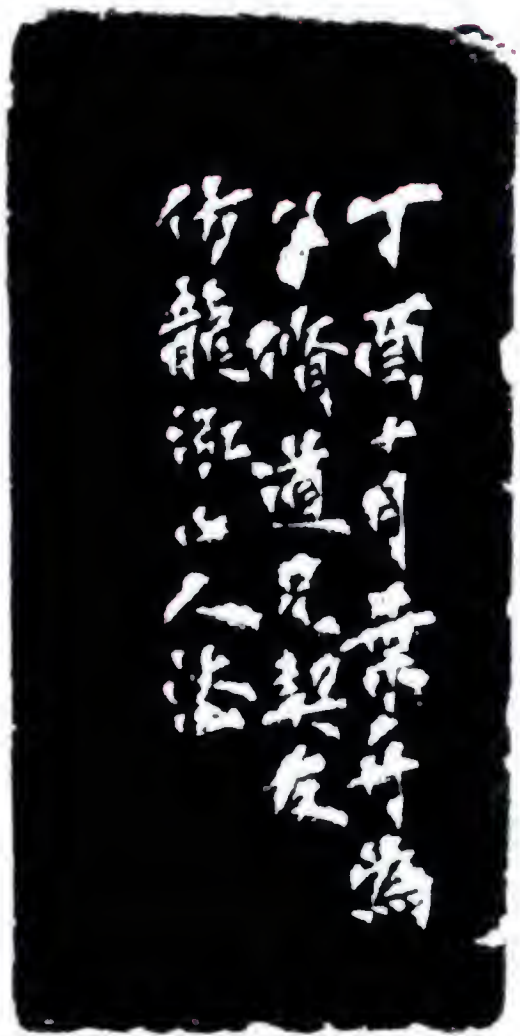 丁酉十月葉舟為
儕道兄契友
仿龍泓山人法